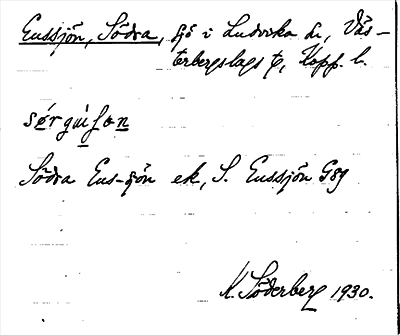 Eussjön, Södra, sjö i Ludvika sn, Väs-
terbergslags tg, Kopp. l.
Södra Eus-sjön ek, S. Eussjön G89
K. Söderberg 1930.